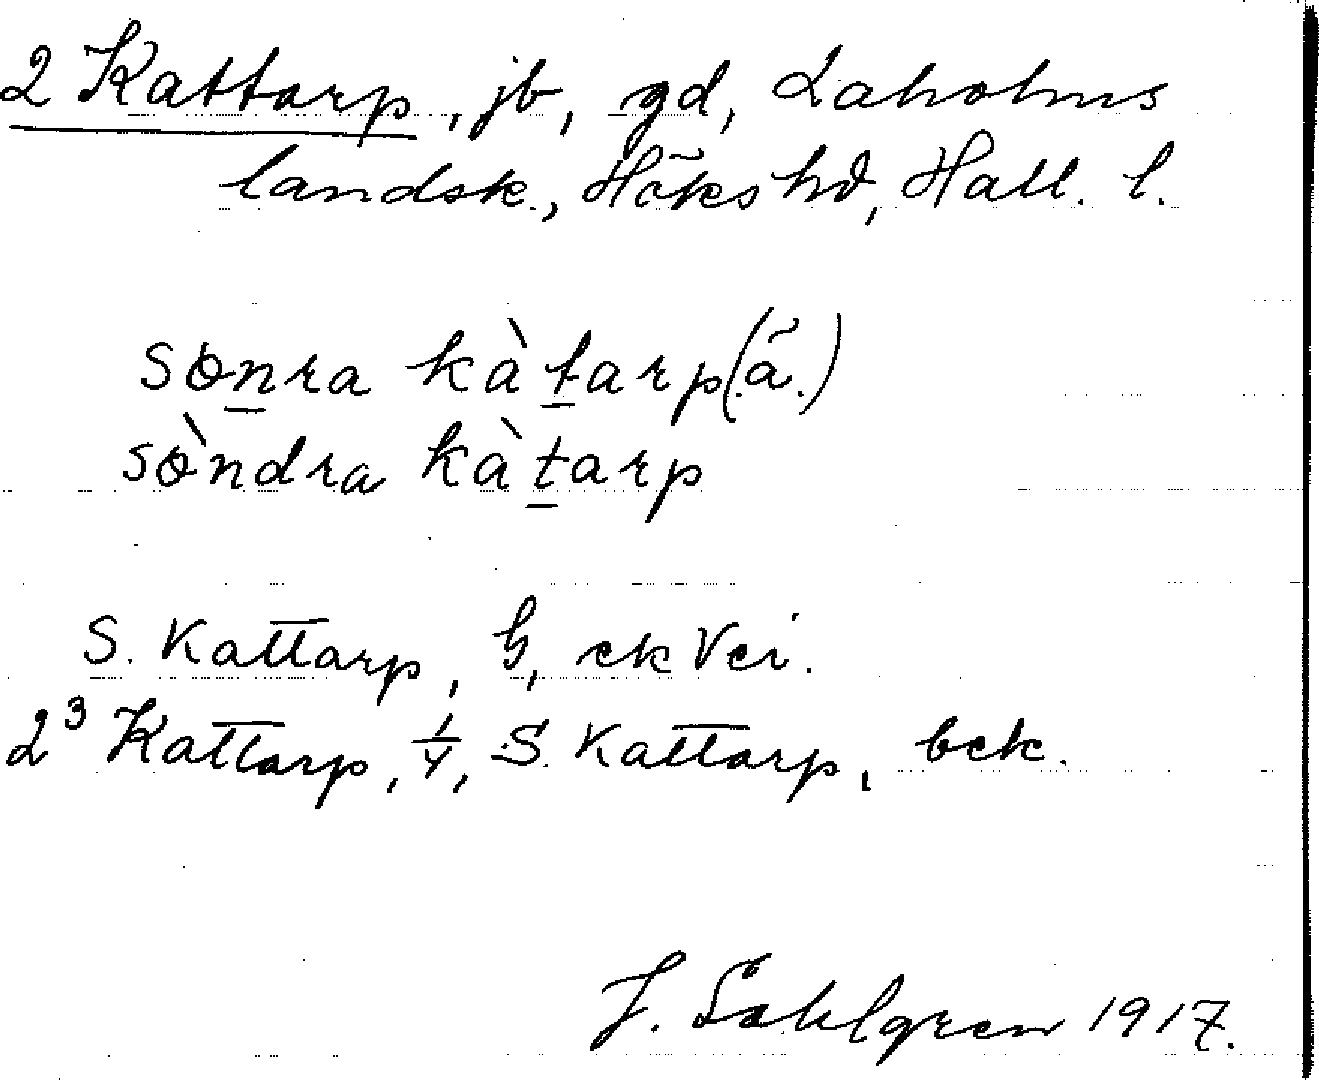 2 Kattarp, jb, gd, Laholms
landsk., Höks hd, Hall. l.
sɵnra kàtarp (ä.)
sɵ̀ndra kàtarp
S. Kattarp, by, ek Vei.
2³ Kattarp, 1/4, S. Kattarp, bek.
J. Sahlgren 1917.